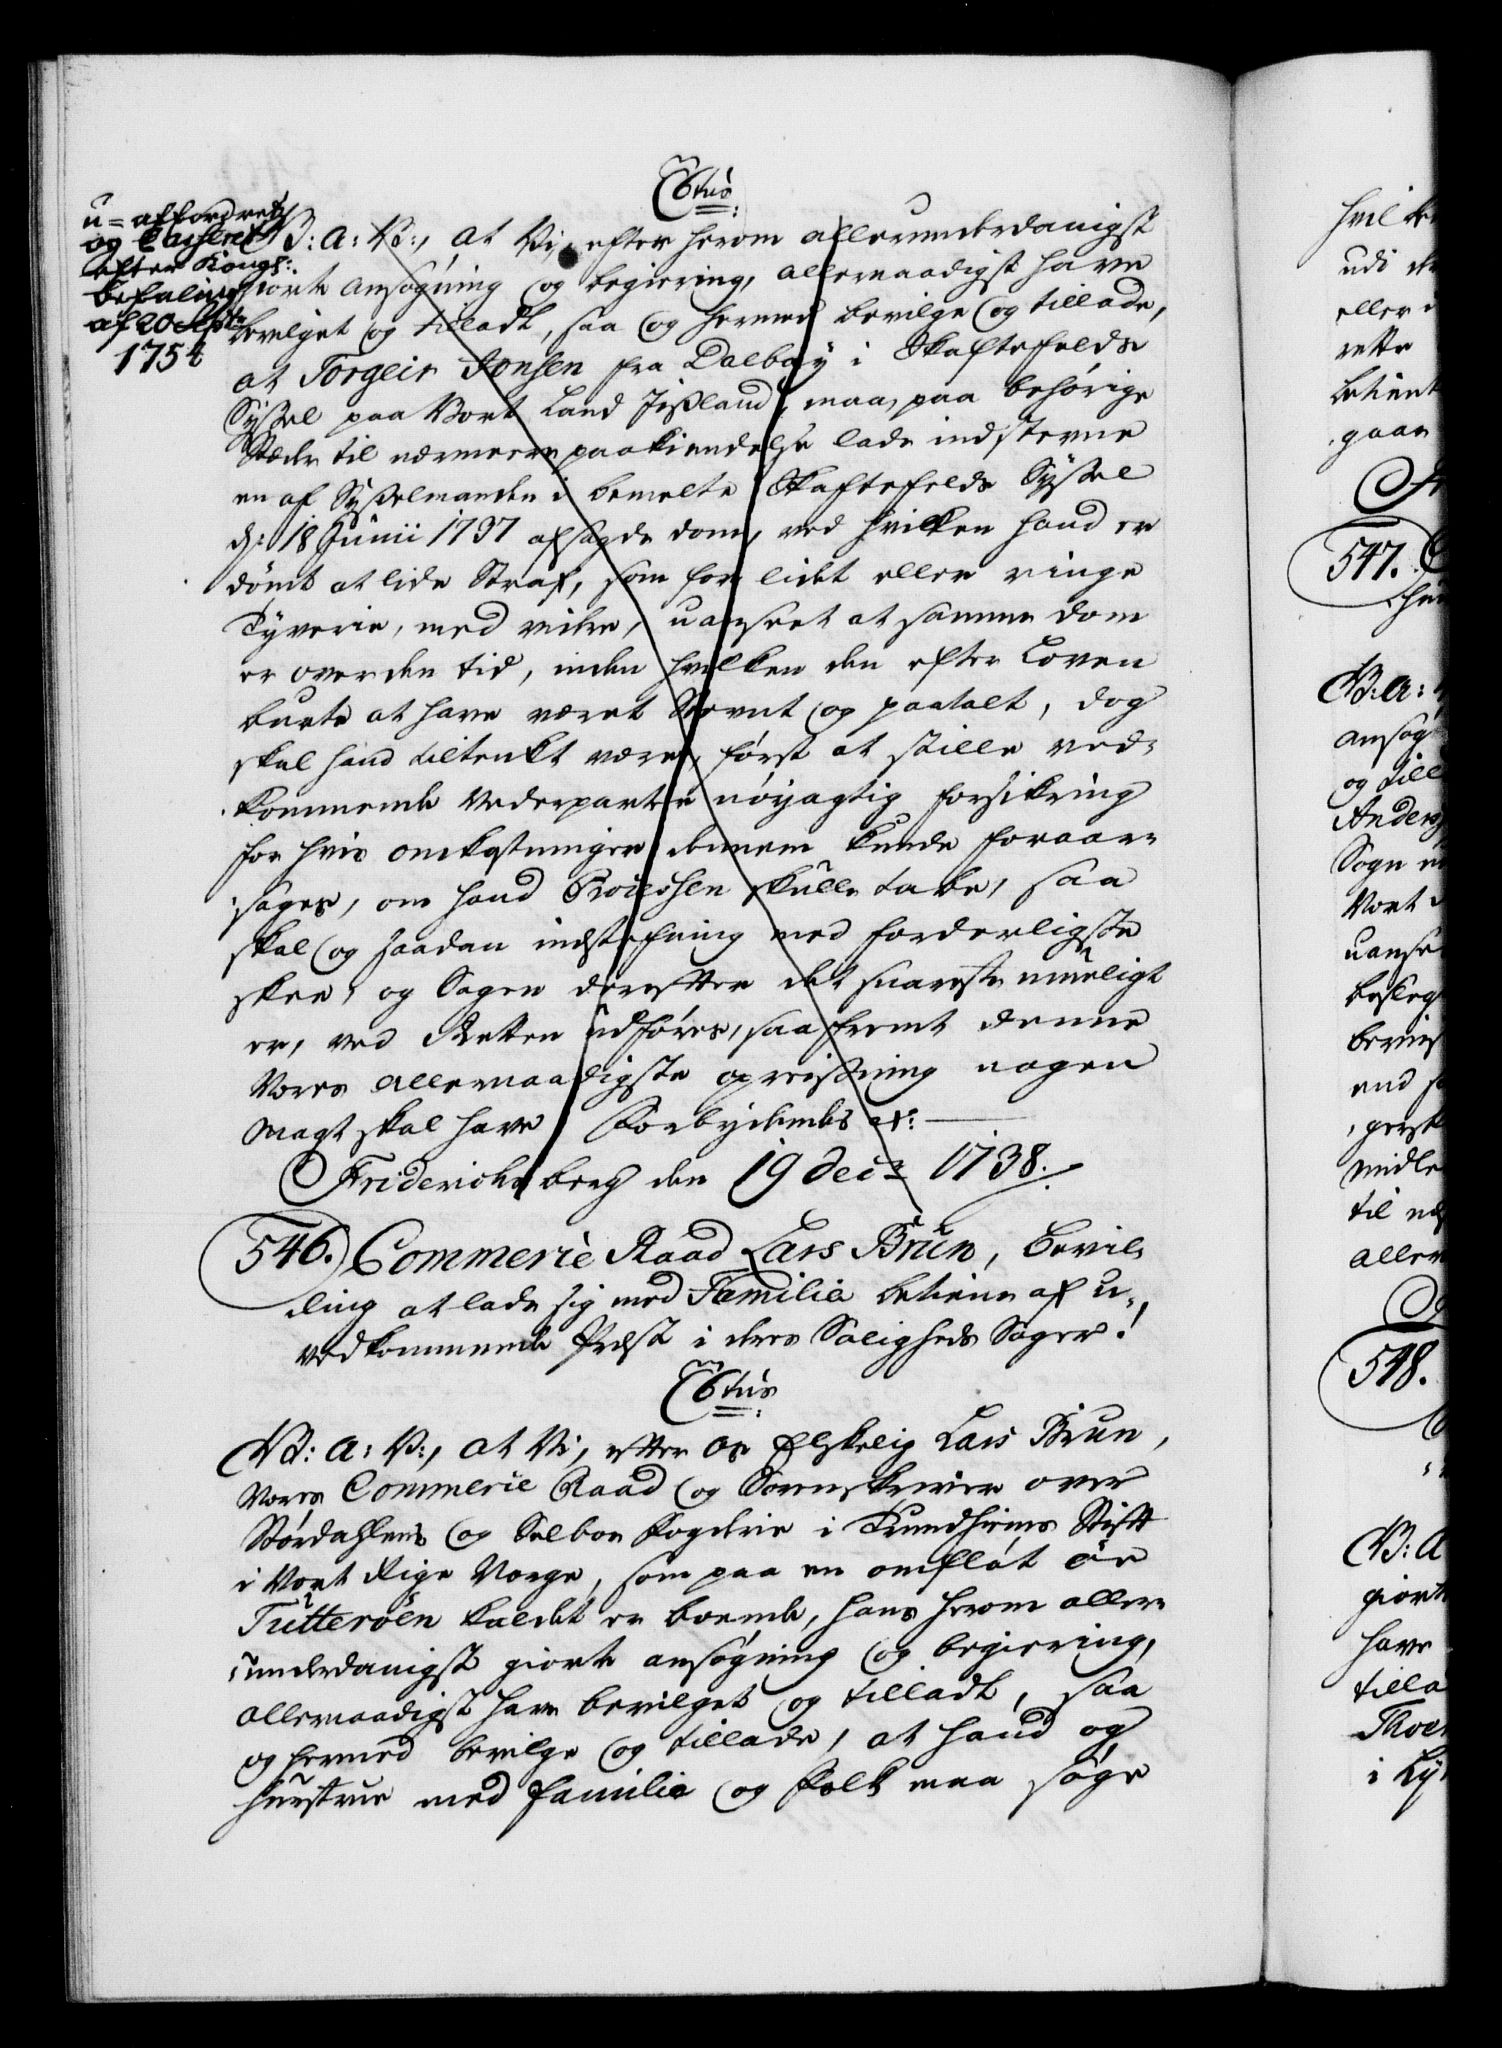 C6tus
u-affordret
og Casseret
efter Kongl:
befaling
af 20 Sept:
1754
G: A: V:, at Vi, efter herom allerunderdanigst
giorte ansøgning og begiering, allernaadigst have
bevilget og tilladt, saa og hermed bevilge og tillade,
at Torgeir Jonsen fra Dalbøy i Skaftefelds
Syssel paa Vort Land Jissland, maa paa behørige
Stæder til nærmere paakiendelse lade indstevne
en af Sysselmanden i bemelte Skaftefelds Syssel
d: 18 Junii 1737 afsagde dom, ved hvilken hand er
dømt at lide Straf, som for lidet eller ringe
Tyverie, med videre, uanseet at samme dom
er over den tid, inden hvilken den efter Loven
burte at have været Stevnt og paatalt, dog
skal hand tiltenkt være, først at stille ved-
kommende Vederparter nøyagtig forsikring
for hvis omkostninger dennem kunde foraar-
sages, om hand Processen skulle tabe, saa
skal og saadan indstefning med forderligste
skee, og Sagen derefter det snareste mueligt
er, ved Retten udføres, saafremt denne
Vores allernaadigste opreissning nogen
Magt skal have Forbydendes etc:
Friderichsberg den 19 dec: 1738.
546. Commerie Raad Lars Brun, Bevil-
ling at lade sig med Familie betiene af u-
vedkommende Præst i deres Saligheds Sager!
C6tus
G: A: V:, at Vi, efter Os Elskelig Lars Brun,
Vores Commerie Raad og Sorenskriver over
Størdahlens og Selboe Fogderie i Trundhiems Stift
i Vort Rige Norge, som paa en omfløt Øe
Tutterøen kaldet er boende, hans herom aller-
underdanigst giorte ansøgning og begiering,
allernaadigst have bevilget og tilladt, saa
og hermed bevilge og tillade, at hand og
hustrue med familie og folk maa søge
udi de
eller
rette
betient
gaar
547.
G: A:
ansøg
og till
Anders
Sogn
Vort
uanse
besleg
bevis
end
midle
til
aller
548.
G: A
giort
have
tilla
i Ly